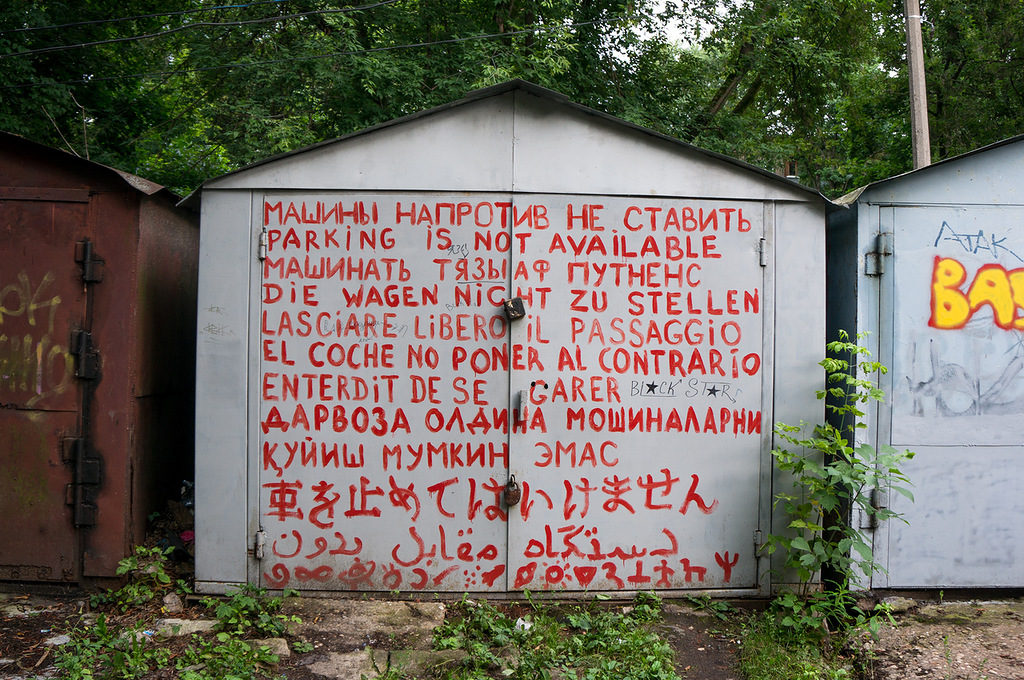 МАШИНЫ НАПРОТИВ НЕ СТАВИТЬ
PARKING IS NOT AVAILABLE
МАШИНАТЬ ТЯЗЫАФ ПУТНЕНС
DIE WAGEN NICHT ZU STELLEN
LASCIARE LIBERO IL PASSAGGIO
EL COCHE NO PONER AL CONTRARIO
ENTERDIT DE SE GARER
BLACK STARS
ДАРВОЗА ОЛДИНА МОШИНАЛАРНИ
ҚУЙИШ МУМКИН ЭМАС
車を止めてはいけません
دستگاه مقابل بدون
ATAK
BAS